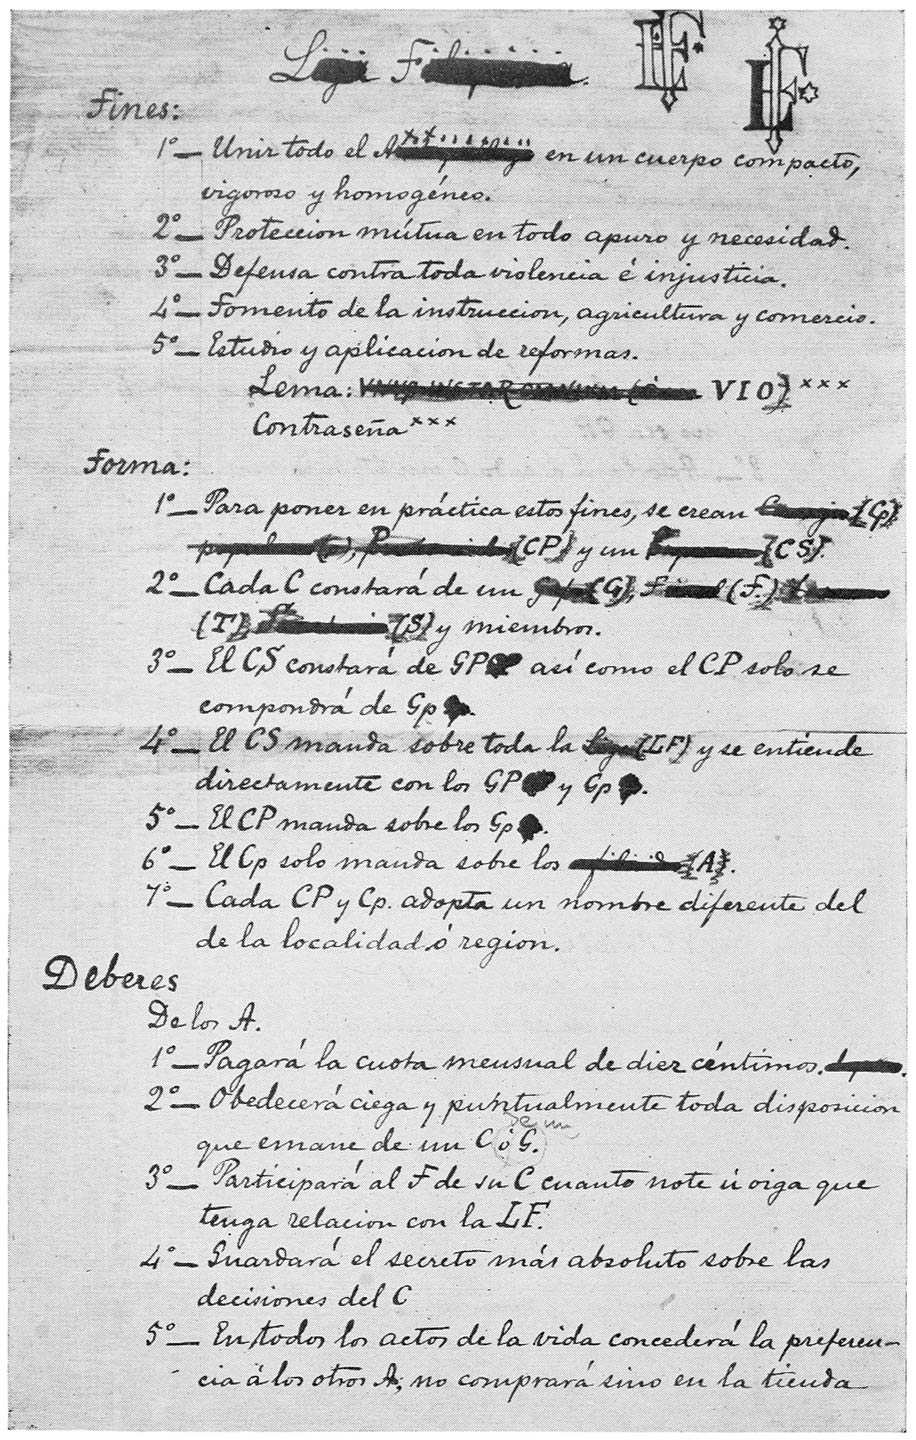 Liga F
LF
LF
Fines:
1º — Unir todo el A en un cuerpo compacto,
vigoroso y homogéneo.
2º — Proteccion mútua en todo apuro y necesidad.
3º — Defensa contra toda violencia é injusticia.
4º — Fomento de la instruccion, agricultura y comercio.
5º — Estudio y aplicacion de reformas.
Lema: VIO) xxx
Contraseña xxx
Forma:
1º — Para poner en práctica estos fines, se crean (Cp)
(CP) y un (CS).
2º — Cada C constará de un (G), (F.)
(T), (S) y miembros.
3º — El CS constará de GP así como el CP solo se
compondrá de Gp.
4º — El CS manda sobre toda la Liga (LF) y se entiende
directamente con los GP y Gp.
5º — El CP manda sobre los Gp.
6º — El Cp solo manda sobre los (A).
7º — Cada CP y Cp. adopta un nombre diferente del
de la localidad ó region.
Deberes
De los A.
1º — Pagará la cuota mensual de diez céntimos.
2º — Obedecerá ciega y puntualmente toda disposicion
de un
que emane de un C ó G.
3º — Participará al F de su C cuanto note ú oiga que
tenga relacion con la LF.
4º — Guardará el secreto más absoluto sobre las
decisiones del C
5º — En todos los actos de la vida concederá la preferen-
cia á los otros A; no comprará sino en la tienda